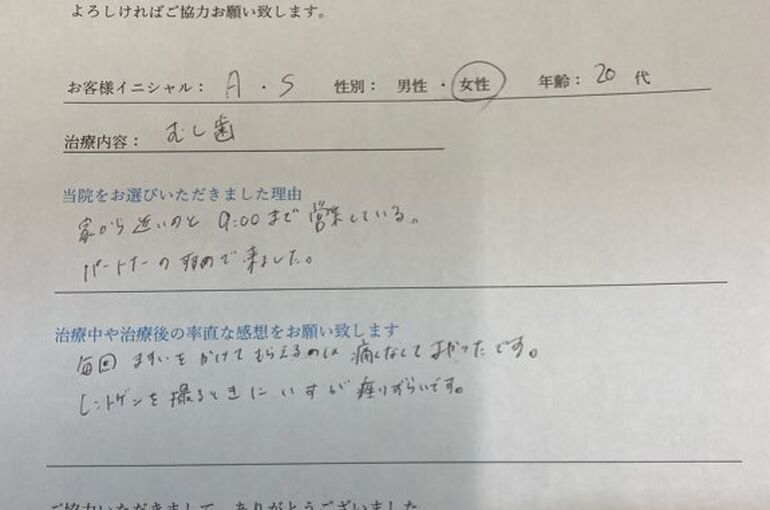 よろしければご協力お願い致します。
お客様イニシャル： A ・ S 性別： 男性 ・ 女性 年齢： 20 代
治療内容： むし歯
当院をお選びいただきました理由
家から近いのと 9:00まで営業している。
パートナーの すすめで来ました。
治療中や治療後の率直な感想をお願い致します
毎回 ますいを かけて もらえるのは 痛くなくて よかったです。
レントゲンを撮るときに いすが 座りずらいです。
ご協力いただきまして、ありがとうございました